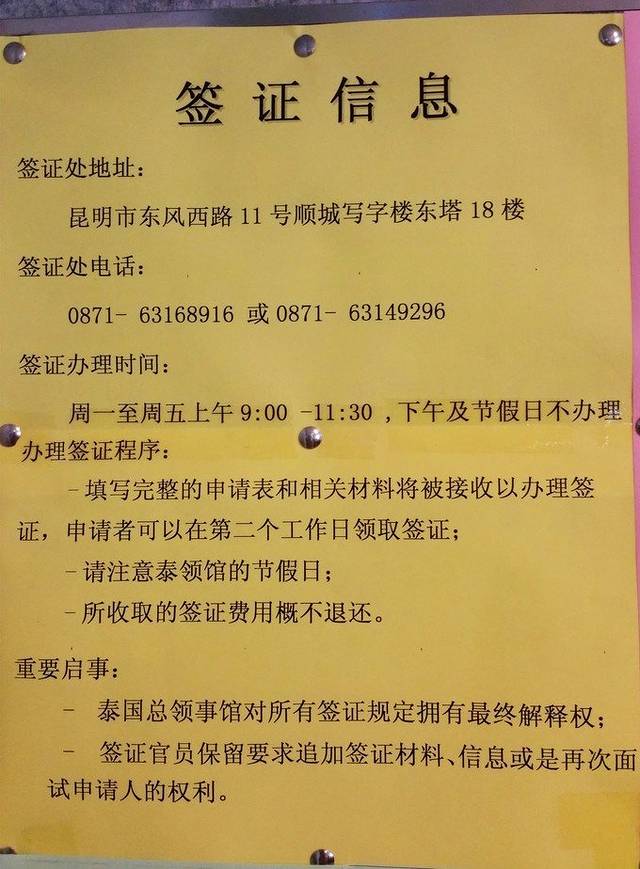 签证信息
签证处地址：
昆明市东风西路11号顺城写字楼东塔18楼
签证处电话：
0871- 63168916 或0871- 63149296
签证办理时间：
周一至周五上午9:00 -11:30 ,下午及节假日不办理
办理签证程序：
-填写完整的申请表和相关材料将被接收以办理签
证，申请者可以在第二个工作日领取签证；
-请注意泰领馆的节假日；
-所收取的签证费用概不退还。
重要启事：
- 泰国总领事馆对所有签证规定拥有最终解释权；
- 签证官员保留要求追加签证材料、信息或是再次面
试申请人的权利。